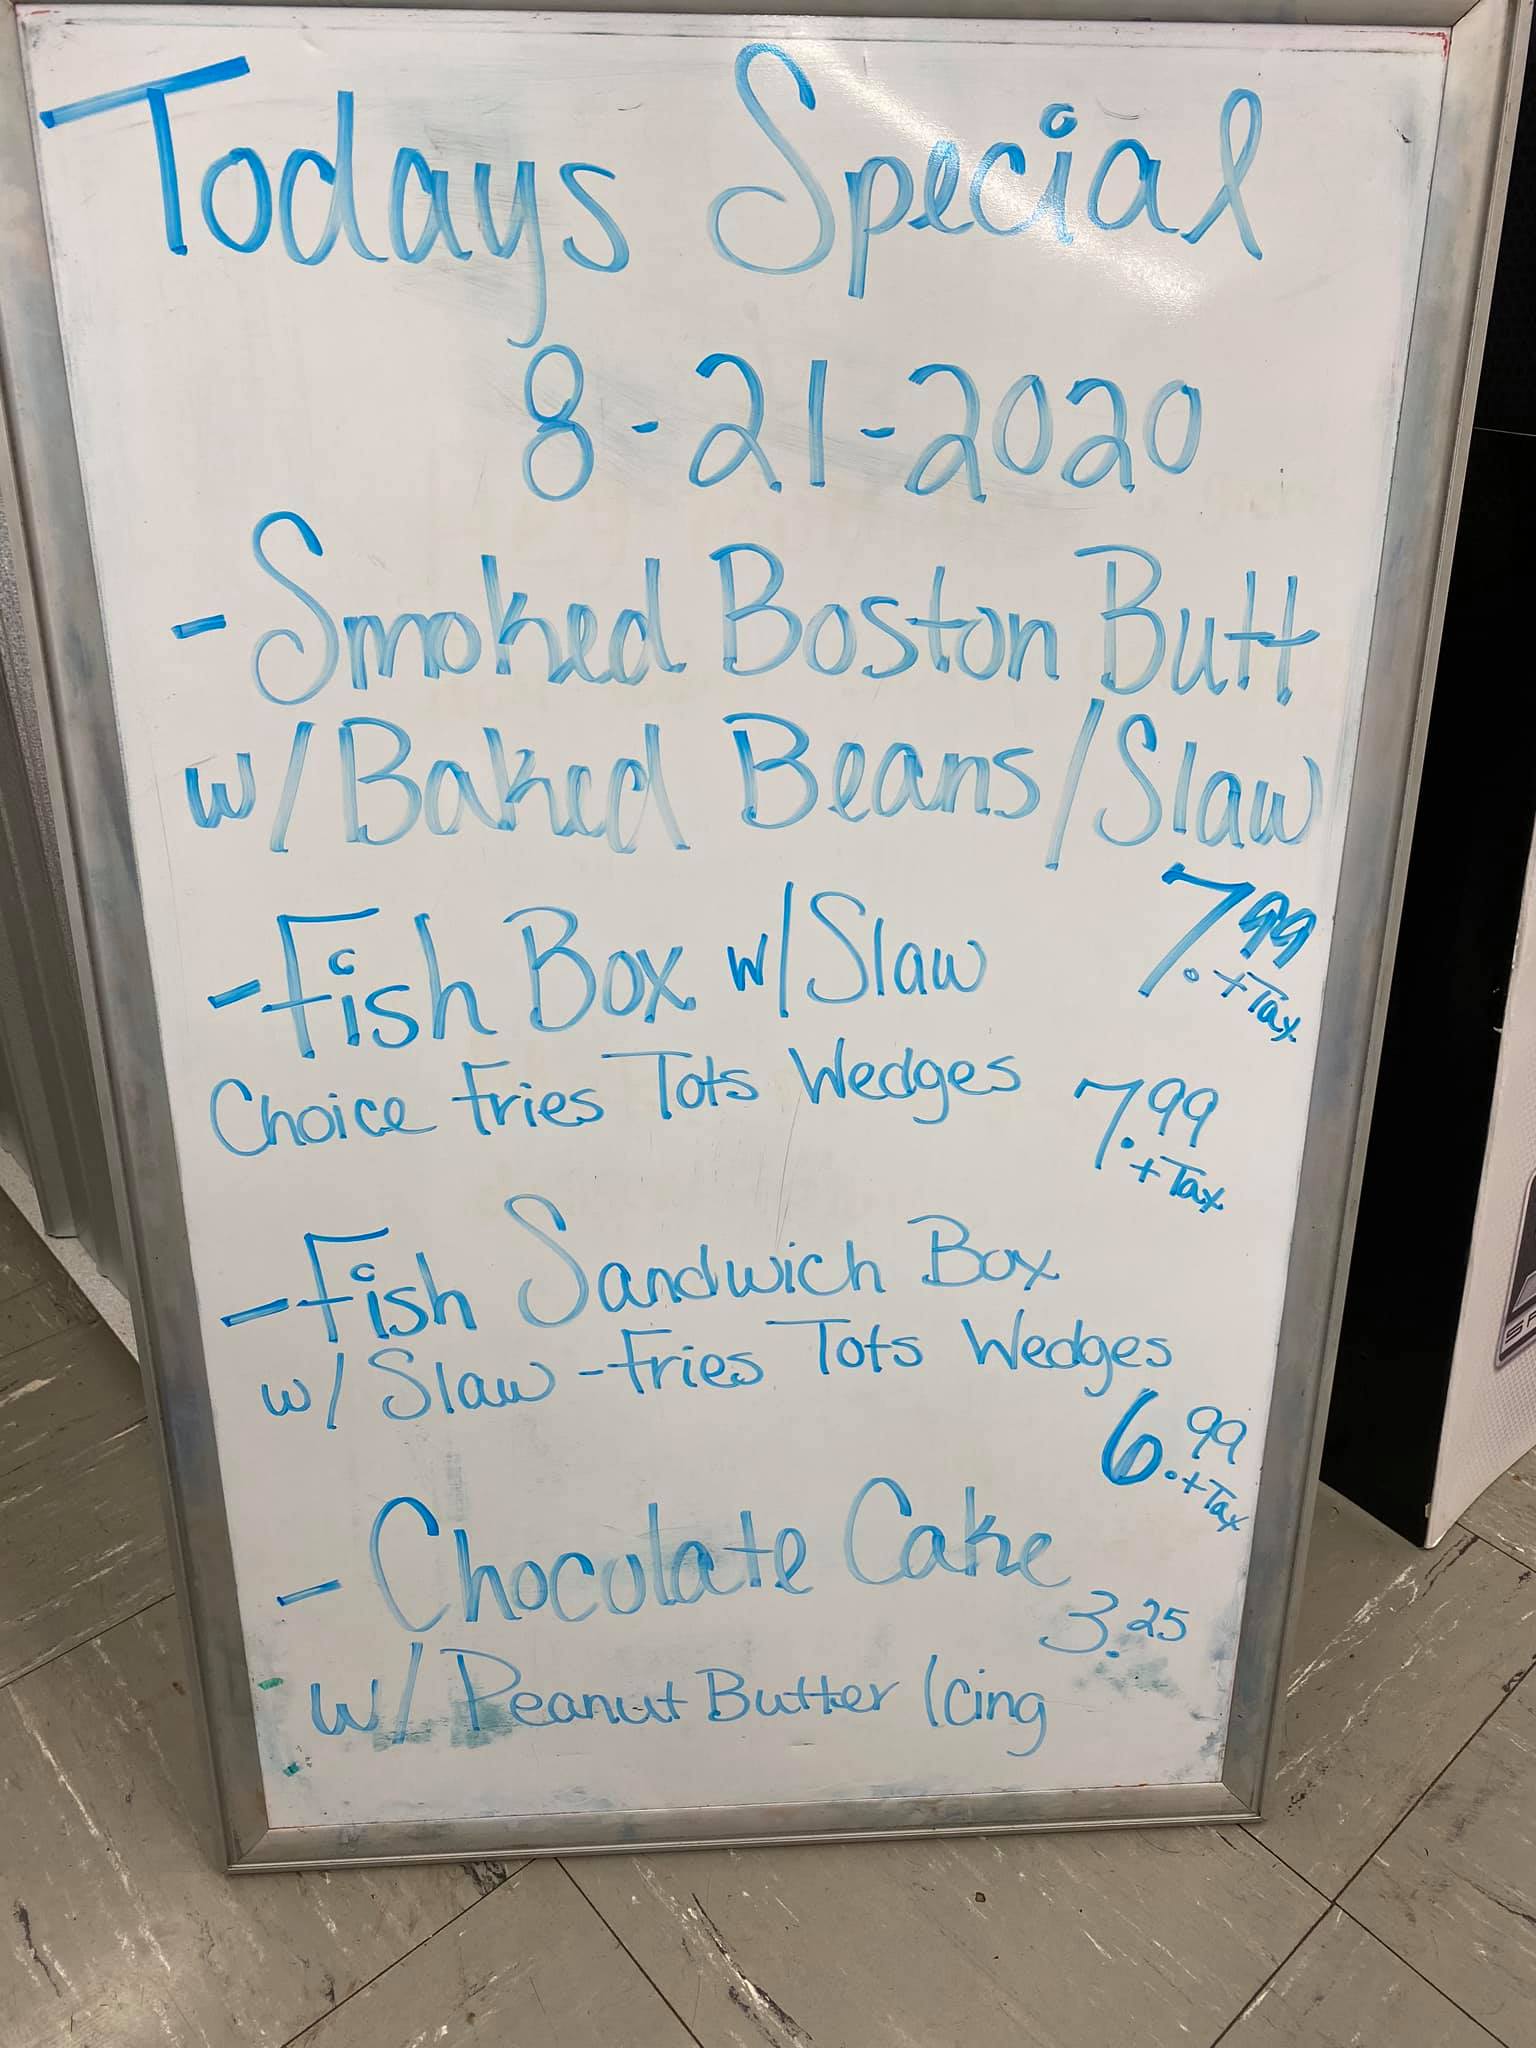 Todays Special
8-21-2020
- Smoked Boston Butt
w/ Baked Beans/Slaw
7.99
+Tax
- Fish Box w/Slaw
Choice Fries Tots Wedges
7.99
+Tax
- Fish Sandwich Box
w/ Slaw - Fries Tots Wedges
6.99
+Tax
- Chocolate Cake
3.25
w/ Peanut Butter Icing